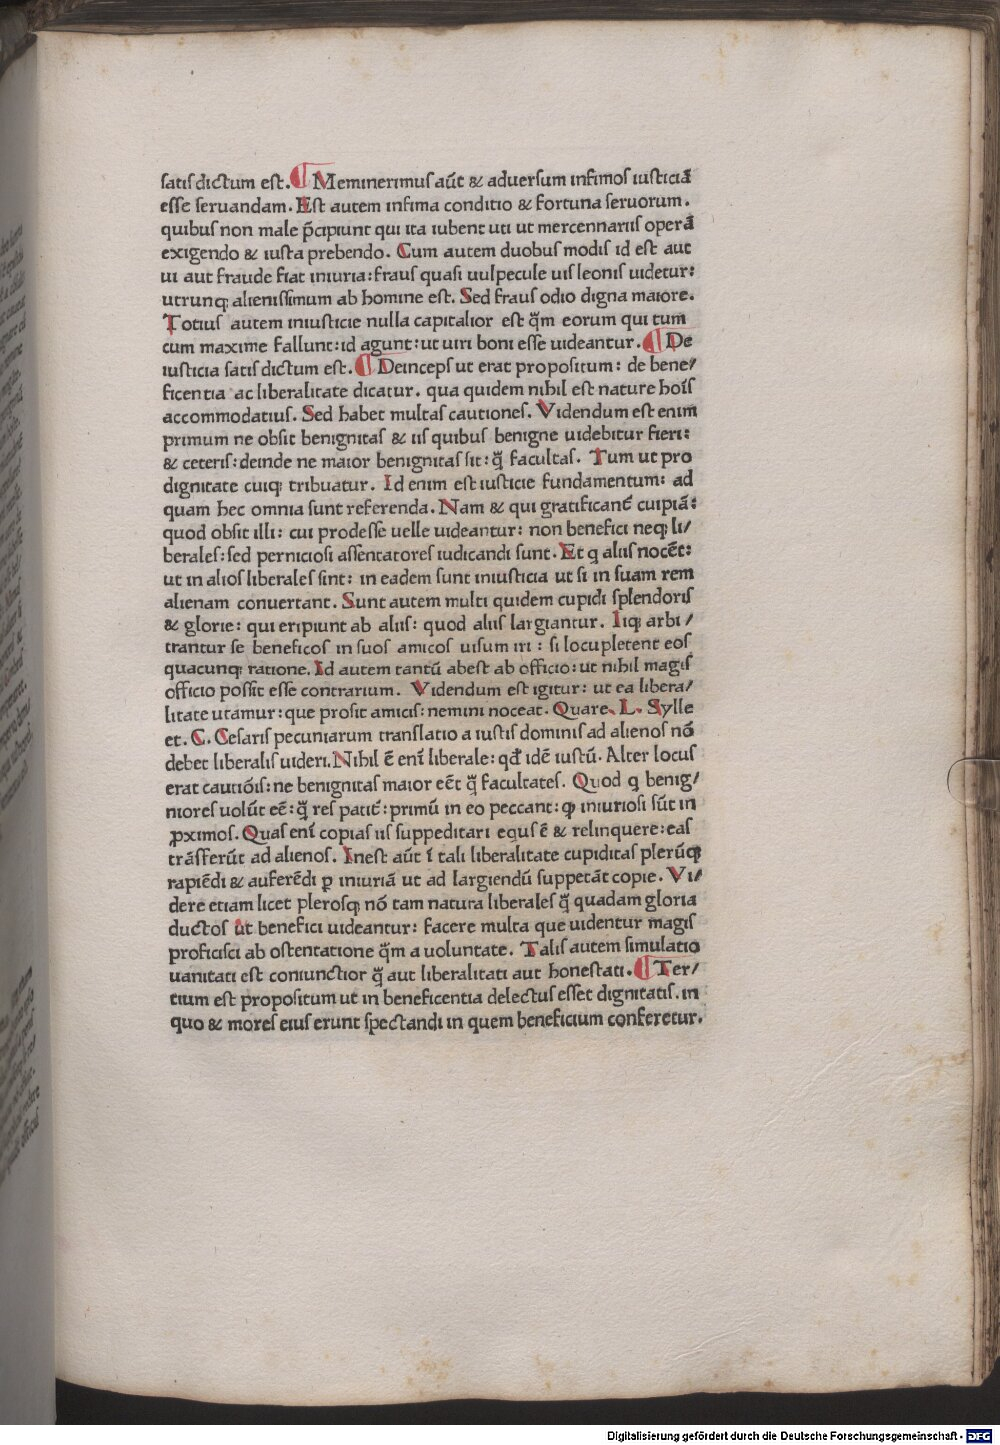 satis dictum est. Meminerimus aūt & aduersum infimos iusticiā
esse seruandam. Est autem infima conditio & fortuna seruorum.
quibus non male p̄cipiunt qui ita iubent uti ut mercennariis operā
exigendo & iusta prebendo. Cum autem duobus modis id est aut
ui aut fraude fiat iniuria: fraus quasi uulpecule uis leonis uidetur:
utrunq; alienissimum ab homine est. Sed fraus odio digna maiore.
Totius autem iniusticie nulla capitalior est q̄m eorum qui tum
cum maxime fallunt: id agunt: ut uiri boni esse uideantur. De
iusticia satis dictum est. Deinceps ut erat propositum: de bene/
ficentia ac liberalitate dicatur. qua quidem nihil est nature hoīs
accommodatius. Sed habet multas cautiones. Videndum est enim
primum ne obsit benignitas & iis quibus benigne uidebitur fieri:
& ceteris: deinde ne maior benignitas sit: q̄ facultas. Tum ut pro
dignitate cuiq; tribuatur. Id enim est iusticie fundamentum: ad
quam hec omnia sunt referenda. Nam & qui gratificant̄ cuipiā:
quod obsit illi: cui prodesse uelle uideantur: non benefici neq; li/
berales: sed perniciosi assentatores iudicandi sunt. Et q aliis nocēt:
ut in alios liberales sint: in eadem sunt iniusticia ut si in suam rem
alienam conuertant. Sunt autem multi quidem cupidi splendoris
& glorie: qui eripiunt ab aliis: quod aliis largiantur. Iiq; arbi/
trantur se beneficos in suos amicos uisum iri: si locupletent eos
quacunq; ratione. Id autem tantū abest ab officio: ut nihil magis
officio possit esse contrarium. Videndum est igitur: ut ea libera/
litate utamur: que prosit amicis: nemini noceat. Quare. L. Sylle
et. C. Cesaris pecuniarum translatio a iustis dominis ad alienos nō
debet liberalis uideri. Nihil ē enī liberale: qd̄ idē iustū. Alter locus
erat cautiōis: ne benignitas maior eēt q̄ facultates. Quod q benig/
niores uolūt eē: q̄ res patit̄: primū in eo peccant: ꝙ iniuriosi sūt in
ꝓximos. Quas enī copias iis suppeditari equs ē & relinquere: eas
trāsferūt ad alienos. Inest aūt ī tali liberalitate cupiditas plerūq;
rapiēdi & auferēdi ꝑ iniuriā ut ad largiendū suppetāt copie. Vi/
dere etiam licet plerosq; nō tam natura liberales q̄ quadam gloria
ductos ut benefici uideantur: facere multa que uidentur magis
proficisci ab ostentatione q̄m a uoluntate. Talis autem simulatio
uanitati est coniunctior q̄ aut liberalitati aut honestati. Ter/
tium est propositum ut in beneficentia delectus esset dignitatis. in
quo & mores eius erunt spectandi in quem beneficium conferetur.
Digitalisierung gefördert durch die Deutsche Forschungsgemeinschaft - DFG